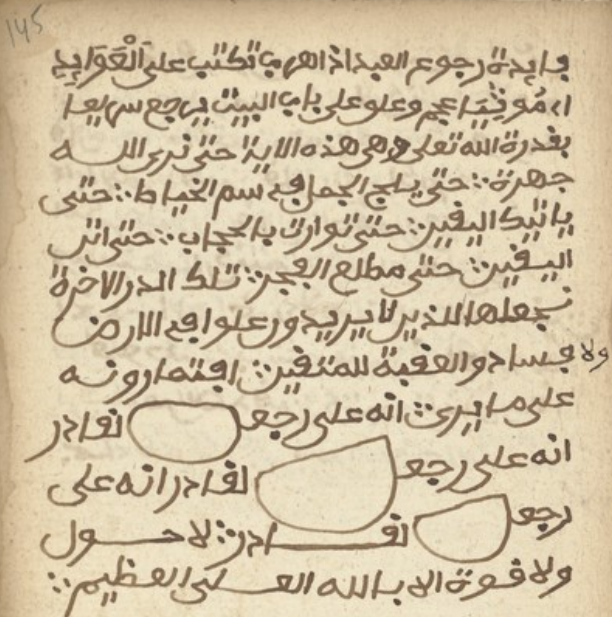 145
فايدة رجوع العبد اذا هرب تكتب على الْعَوَايِدِ
اعجم وعلو على باب البيت يرجع سريعا
بقدرة الله تعلى وهي هذه الاية حتى نرى الله
جهرة ∴ حتى يلج الجمل في سم الخياط ∴ حتى
ياتيك اليقين ∴ حتى توارت بالحجاب ∴ حتى اتن
اليقين ∴ حتى مطلع الفجر ∴ تلك الدر الاخرة
نجعلها للذين لا يريدون علوا في الارض
ولا فساد والعقبة للمتقين ∴ افتمارونه
على ما يرى ∴ انه على رجعه لقادر
انه على رجعه لقادر انه على
رجعه لقادر ∴ لا حول
ولا قوة الا بالله العلى العظيم ∴